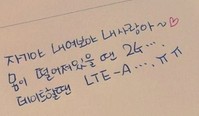 자기야 내여보야 내사랑아~♡
몸이 떨어져있을 땐 2G...
데이트할땐 LTE-A...ㅠㅠ